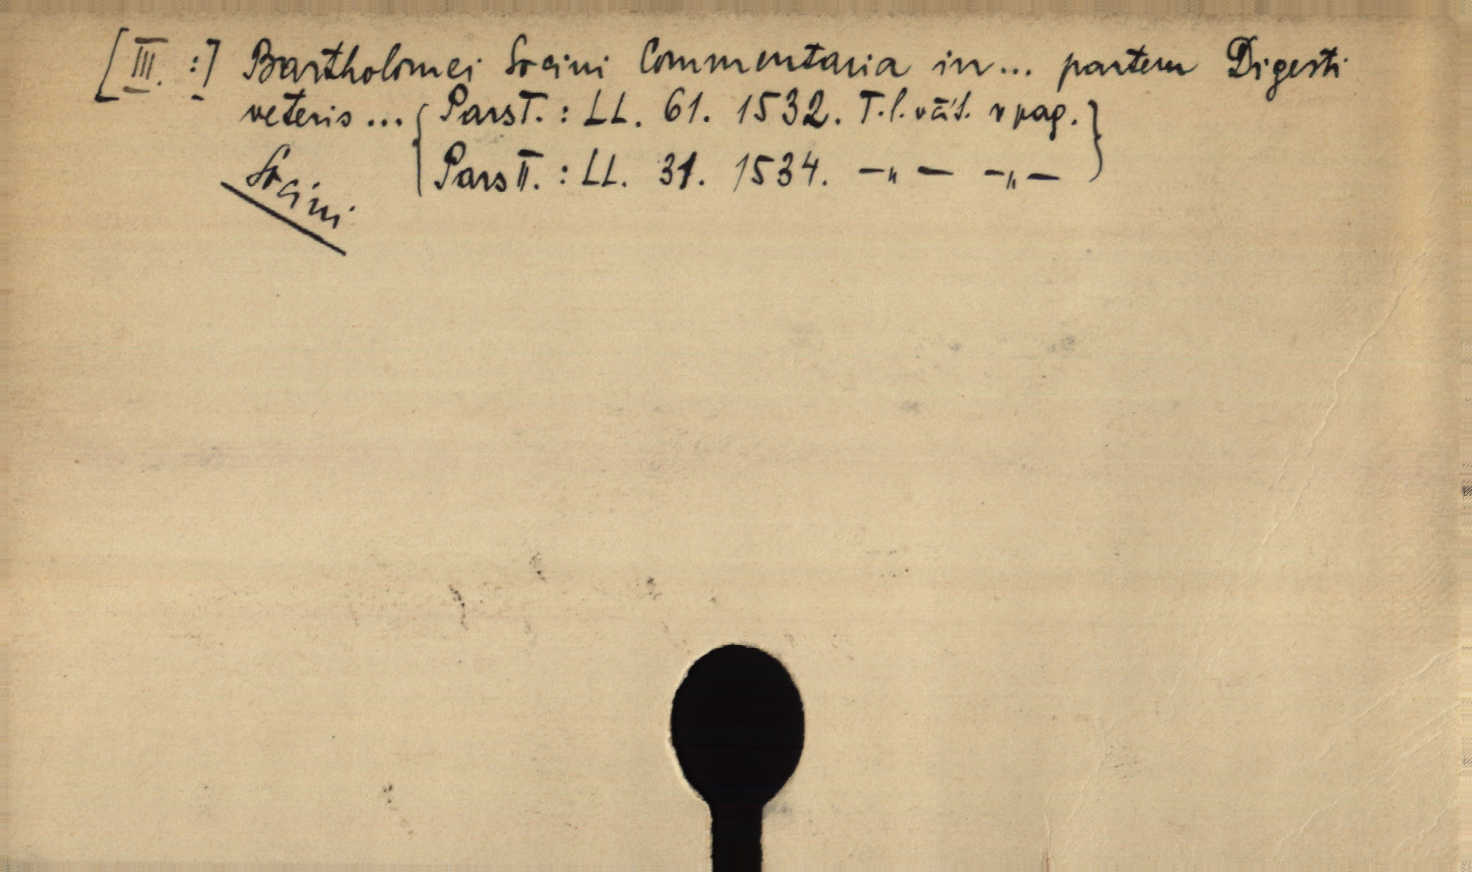 [III. :] Bartholomei Socini Commentaria in... partem Digesti
veteris ... { Pars I. : LL. 61. 1532. T. l. väl. v pag. }
Pars II. : LL. 31. 1534. -„- -„-
Socini